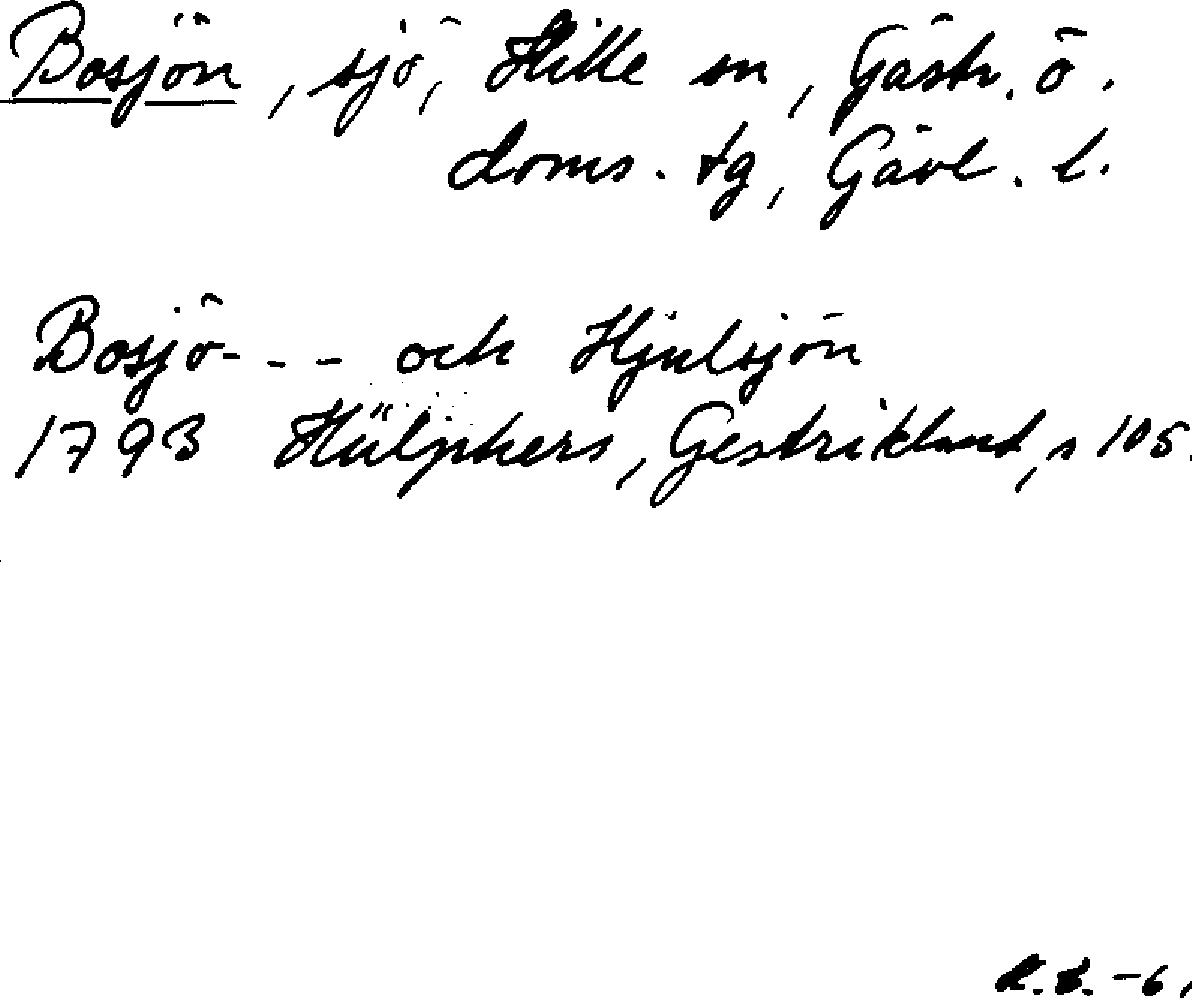 Bosjön, sjö, Hille sn, Gästr. ö.
doms. tg, Gävl. l.
Bosjö- - - och Hjulsjön
1793 Hülphers, Gestrikland, s 105.